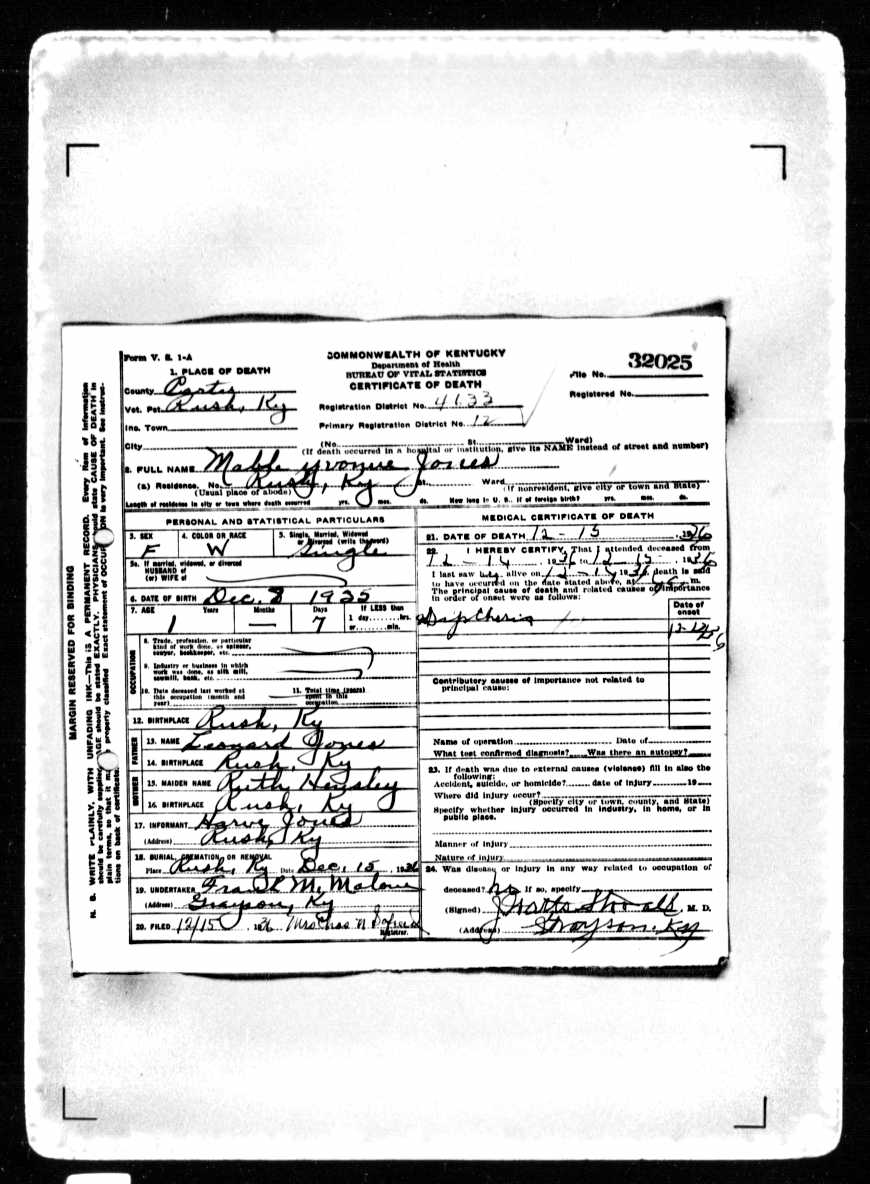 Form V. S. 1-A
COMMONWEALTH OF KENTUCKY
Department of Health
BUREAU OF VITAL STATISTICS
CERTIFICATE OF DEATH
File No. 32025
Registered No.
1. PLACE OF DEATH
County Carter
Vot. Pct. Rush, Ky
Inc. Town
City
Registration District No. 4133
Primary Registration District No. 12
(No. St. Ward)
(If death occurred in a hospital or institution, give its NAME instead of street and number)
2. FULL NAME Mable Yvonne Jones
(a) Residence. No. Rush, Ky St. Ward
(Usual place of abode) (If nonresident, give city or town and State)
Length of residence in city or town where death occurred yrs. mos. ds. How long in U. S., if of foreign birth? yrs. mos. ds.
PERSONAL AND STATISTICAL PARTICULARS
3. SEX F
4. COLOR OR RACE W
5. Single, Married, Widowed or Divorced (write the word) Single
5a. If married, widowed, or divorced
HUSBAND of
(or) WIFE of
6. DATE OF BIRTH Dec. 8 1935
7. AGE Years 1 Months — Days 7 If LESS than
1 day, hrs.
or min.
OCCUPATION
8. Trade, profession, or particular
kind of work done, as spinner,
sawyer, bookkeeper, etc.
9. Industry or business in which
work was done, as silk mill,
sawmill, bank, etc.
10. Date deceased last worked at
this occupation (month and
year)
11. Total time (years)
spent in this
occupation
12. BIRTHPLACE Rush, Ky
FATHER
13. NAME Leonard Jones
14. BIRTHPLACE Rush, Ky
MOTHER
15. MAIDEN NAME Ruth Hensley
16. BIRTHPLACE Rush, Ky
17. INFORMANT Harve Jones
(Address) Rush, Ky
18. BURIAL, CREMATION, OR REMOVAL
Place Rush, Ky Date Dec. 15, 1936
19. UNDERTAKER Frank M. Malone
(Address) Grayson, Ky
20. FILED 12/15 1936 Mrs Chas N
Registrar.
MEDICAL CERTIFICATE OF DEATH
21. DATE OF DEATH 12 - 15, 1936
22. I HEREBY CERTIFY, That I attended deceased from
12 - 14, 1936 to 12 - 15, 1936
I last saw her alive on 12 - 14 1936, death is said
to have occurred on the date stated above, at m.
The principal cause of death and related causes of importance
in order of onset were as follows:
Date of
onset
Diptheria
12-12-36
Contributory causes of importance not related to
principal cause:
Name of operation Date of
What test confirmed diagnosis? Was there an autopsy?
23. If death was due to external causes (violence) fill in also the
following:
Accident, suicide, or homicide? date of injury 19
Where did injury occur?
(Specify city or town, county, and State)
Specify whether injury occurred in industry, in home, or in
public place.
Manner of injury
Nature of injury
24. Was disease or injury in any way related to occupation of
deceased? No If so, specify
(Signed) J Watts Stovall, M. D.
(Address) Grayson, Ky
MARGIN RESERVED FOR BINDING
N. B. WRITE PLAINLY, WITH UNFADING INK—This is A PERMANENT RECORD. Every item of information
should be carefully supplied. AGE should be stated EXACTLY. PHYSICIANS should state CAUSE OF DEATH in
plain terms, so that it may properly classified. Exact statement of OCCUPATION is very important. See instruc-
tions on back of certificate.